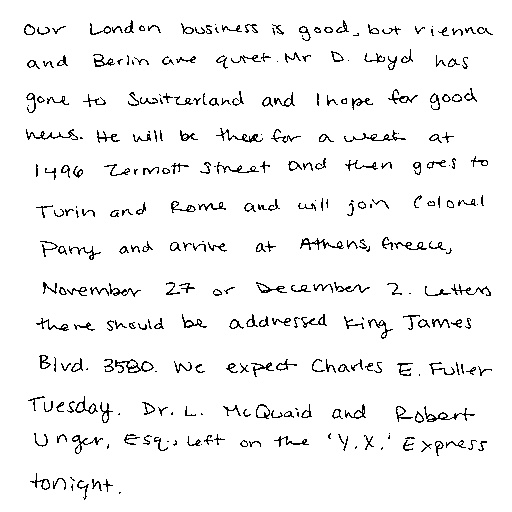 Our London business is good, but vienna
and Berlin are quiet. Mr D. Lloyd has
gone to Switzerland and I hope for good
news. He will be there for a week at
1496 Zermott Street and then goes to
Turin and Rome and will join Colonel
Parry and arrive at Athens, Greece,
November 27 or December 2. Letters
there should be addressed King James
Blvd. 3580. We expect Charles E. Fuller
Tuesday. Dr. L. McQuaid and Robert
Unger, Esq., left on the 'Y.X.' Express
tonight.